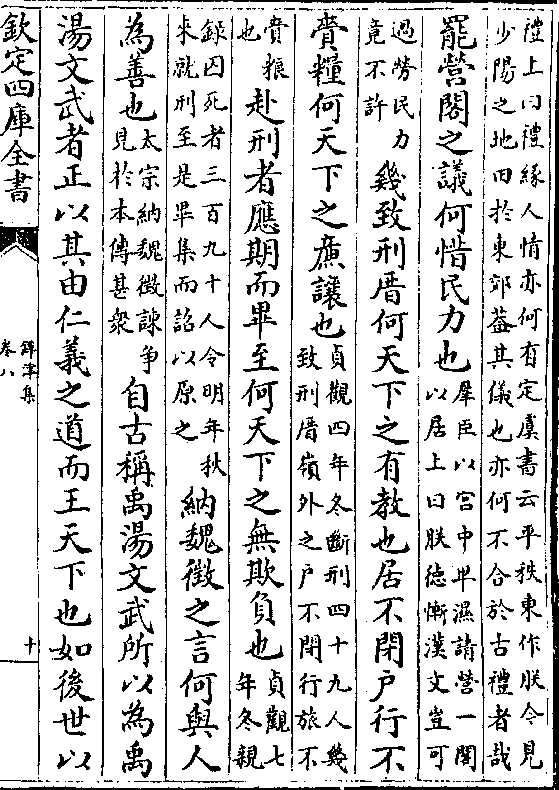 禮上曰禮緣人情亦何有定虞書云平秩東作朕今見
少陽之地田於東郊葢其儀也亦何不合於古禮者哉
罷營閣之議何惜民力也
羣臣以宮中卑濕請營一閣
以居上曰朕徳慚漢文豈可
過勞民力
竟不許
幾致刑厝何天下之有教也居不閉户行不
賫糧何天下之廉讓也
貞觀四年冬斷刑四十九人幾
致刑厝嶺外之户不閉行旅不
賫粮
也
赴刑者應期而畢至何天下之無欺負也
貞觀七
年冬親
録囚死者三百九十人令明年秋
來就刑至是畢集而詔以原之
納魏徴之言何與人
為善也
太宗納魏徴諫爭
見於本傳甚衆
自古稱禹湯文武所以為禹
湯文武者正以其由仁義之道而王天下也如後世以
欽定四庫全書
鐔津集
卷八
十